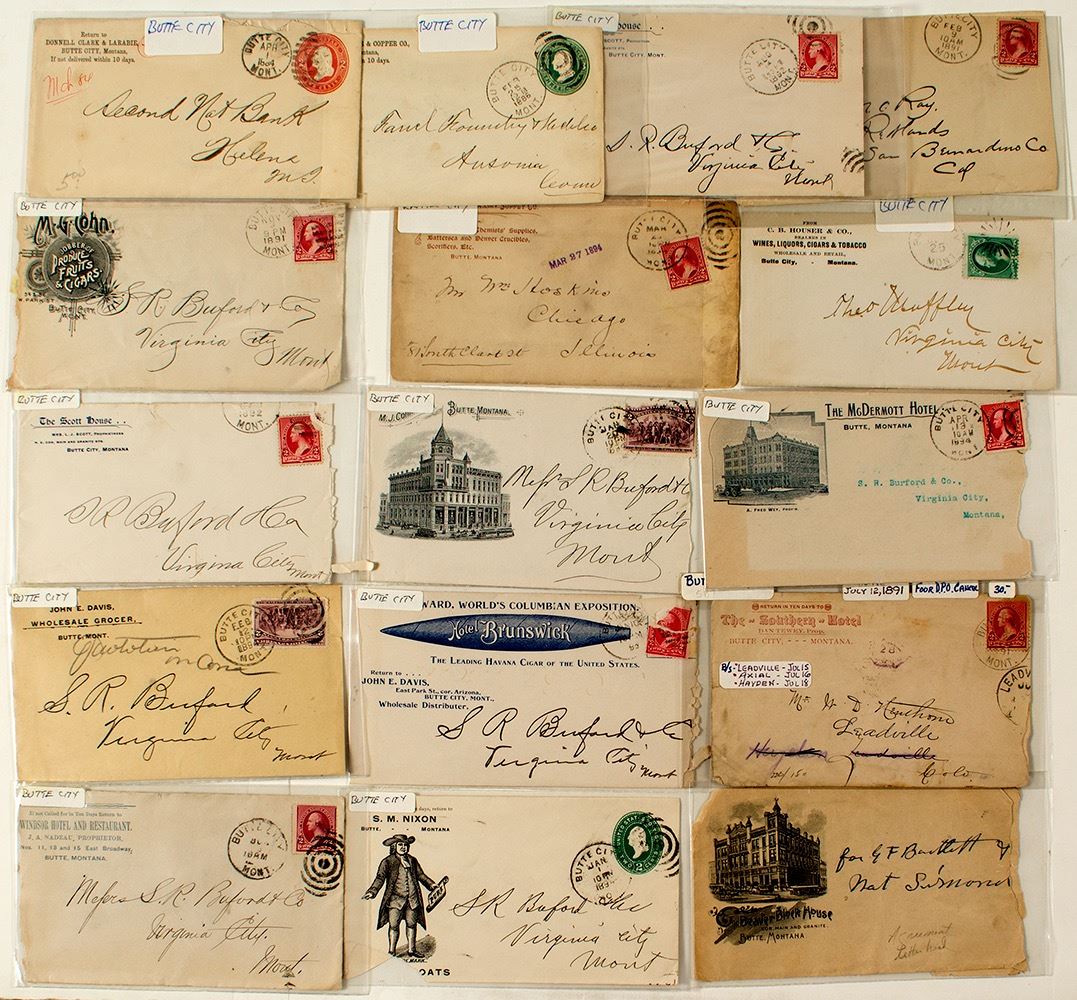 BUTTE CITY
Return to
DONNELL CLARK & LARABIE,
BUTTE CITY, Montana,
If not delivered within 10 days.
BUTTE CITY
APR
MONT.
Second Nat Bank
Helena
M.T.
BUTTE CITY
& COPPER CO,
Montana,
10 days.
BUTTE CITY
MONT
1886
Ansonia
Conn
BUTTE CITY
House
SCOTT, PROPRIETRESS
BUTTE CITY
MONT.
S. R. Buford & Co.
Virginia City
Mont
BUTTE CITY
FEB
9
10AM
1891
MONT.
Redlands
San Bernardino Co
Cal
BUTTE CITY
M. G. Cohn
JOBBER OF
PRODUCE
FRUITS
& CIGARS.
W. PARK ST.
BUTTE CITY,
MONT.
8 PM
1891
MONT.
S R Buford & Co
Virginia City
Mont
Chemists' Supplies,
Battersea and Denver Crucibles,
Scorifiers, Etc.
BUTTE, MONTANA
MAR 27 1894
BUTTE CITY
MAR
MONT.
Mr Wm Hoskins
Chicago
81 South Clark st Illinois
BUTTE CITY
FROM
C. B. HOUSER & CO.,
DEALERS IN
WINES, LIQUORS, CIGARS & TOBACCO
WHOLESALE AND RETAIL,
Butte City, - Montana.
25
MONT
Theo Muffley
Virginia City
Mont
BUTTE CITY
The Scott House . .
MRS. L. J. SCOTT, PROPRIETRESS
N. E. COR. MAIN AND GRANITE STS.
BUTTE CITY, MONTANA
1892
MONT.
S R Buford & Co
Virginia City
Mont
BUTTE CITY
BUTTE, MONTANA.
BUTTE CITY
JAN
MONT
Messrs S R Buford & Co
Virginia City
Mont
BUTTE CITY
THE MCDERMOTT HOTEL
BUTTE, MONTANA
A. FRED WEY, PROP'R.
BUTTE CITY
APR
13
10AM
1894
MONT.
S. R. Burford & Co.,
Virginia City,
Montana,
BUTTE CITY
JOHN E. DAVIS,
WHOLESALE GROCER,
BUTTE, MONT.
BUTTE CITY
FEB
1894
MONT
S. R. Buford
Virginia City
Mont
BUTTE CITY
AWARD, WORLD'S COLUMBIAN EXPOSITION.
Hotel Brunswick
THE LEADING HAVANA CIGAR OF THE UNITED STATES.
Return to . . .
JOHN E. DAVIS,
East Park St., cor. Arizona,
BUTTE CITY, MONT.,
Wholesale Distributer.
S R Buford & Co
Virginia City
Mont
BUT
JULY 12, 1891
FOUR D.P.O. CANCEL
30.-
RETURN IN TEN DAYS TO
The - Southern - Hotel
DAN TEWEY, PROP.
BUTTE CITY, - - - MONTANA.
B/S - "LEADVILLE - JUL 15
• AXIAL - JUL 16
• HAYDEN - JUL 18
MONT.
LEADV
Leadville
Hayden Leadville
Colo.
BUTTE CITY
If not Called for in Ten Days Return to
WINDSOR HOTEL AND RESTAURANT.
J. A. NADEAU, PROPRIETOR,
Nos. 11, 13 and 15 East Broadway,
BUTTE, MONTANA.
BUTTE CITY
10AM
MONT.
Messrs S. R. Buford & Co
Virginia City.
Mont.
BUTTE CITY
days, return to
S. M. NIXON
BUTTE, - MONTANA
OATS
BUTTE CITY
JAN
UNITED STATES
TWO CENTS
2
S R Buford & Co
Virginia City
Mont
The Beaver Block House
COR. MAIN AND GRANITE.
BUTTE, MONTANA
for G F Bartlett &
Nat Simond